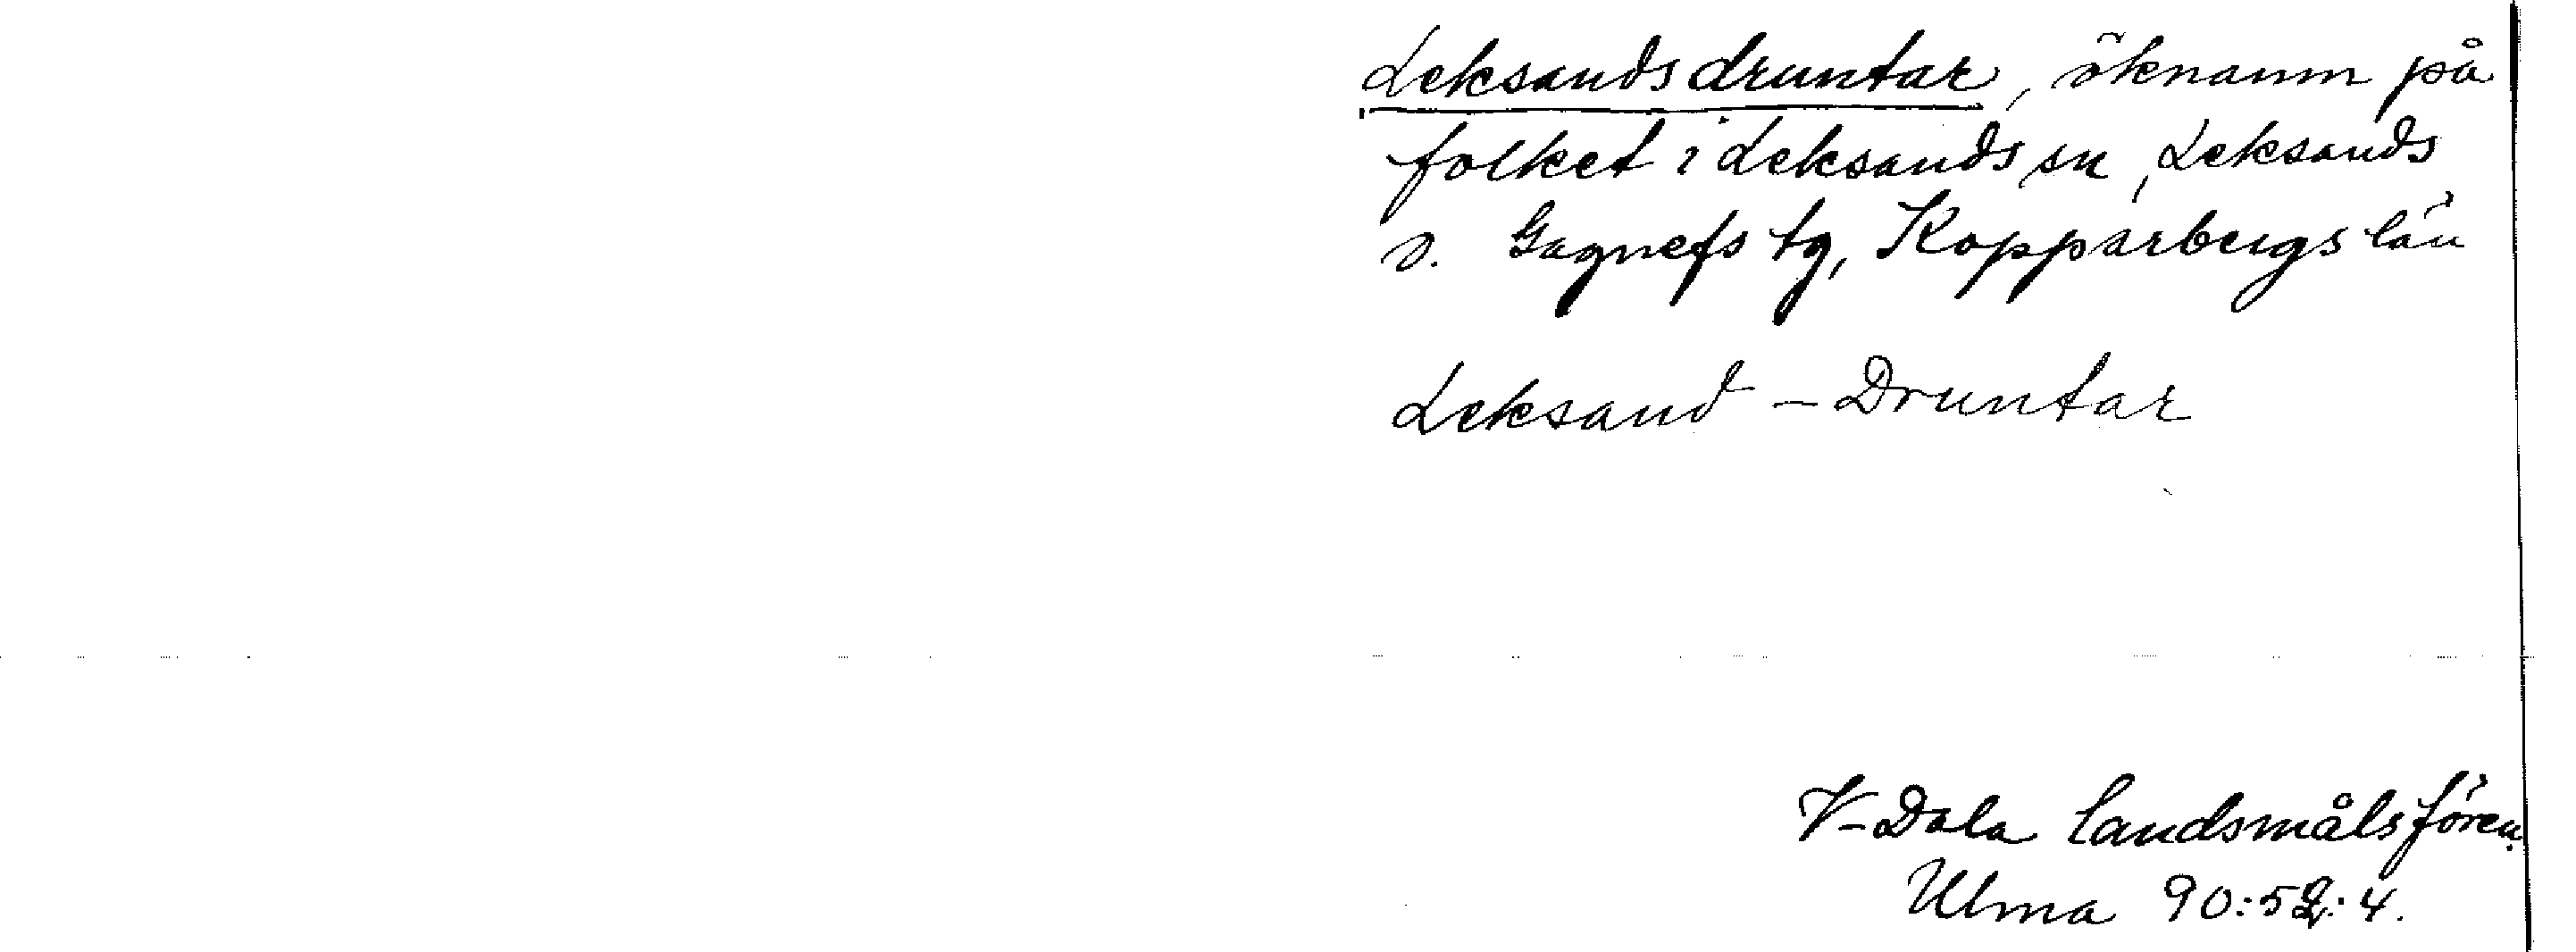 Leksandsdruntar, öknamn på
folket i Leksands sn, Leksands
o. Gagnefs tg, Kopparbergs län
Leksand – Druntar
V-Dala landsmålsfören.
Ulma 90:52:4.